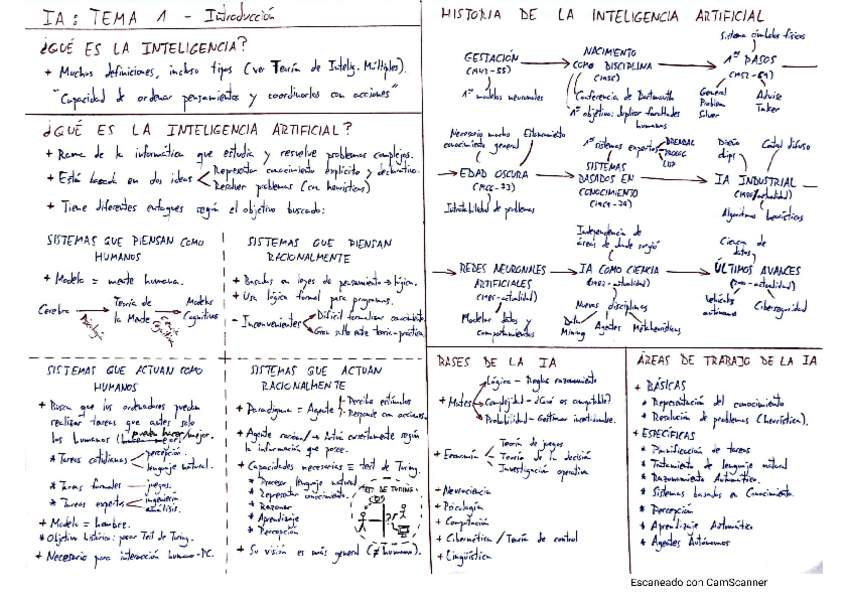 IA: TEMA 1 - Introducción
¿QUÉ ES LA INTELIGENCIA?
+ Muchas definiciones, incluso tipos (ver Teoría de Intelig. Múltiples).
"Capacidad de ordenar pensamientos y coordinarlos con acciones"
¿QUÉ ES LA INTELIGENCIA ARTIFICIAL?
+ Rama de la informática que estudia y resuelve problemas complejos.
+ Está basada en dos ideas
Representar conocimiento explícito y declarativo.
Resolver problemas (con heurísticas)
+ Tiene diferentes enfoques según el objetivo buscado:
SISTEMAS QUE PIENSAN COMO
HUMANOS
+ Modelo = mente humana.
Cerebro
Teoría de
la Mente
Modelos
Cognitivos
SISTEMAS QUE PIENSAN
RACIONALMENTE
+ Basados en leyes de pensamiento → lógica.
+ Usa lógica formal para programas.
- Inconvenientes
Difícil formalizar conocimiento
Gran salto entre teoría-práctica.
SISTEMAS QUE ACTUAN COMO
HUMANOS
+ Busca que los ordenadores puedan
realizar tareas que antes solo
los humanos
pueda hacer/mejor.
* Tareas cotidianas
percepción.
lenguaje natural.
* Tareas formales
juegos.
* Tareas expertas
ingeniería
análisis.
+ Modelo = hombre.
* Objetivo histórico: pasar Test de Turing.
+ Necesario para interacción humano-PC.
SISTEMAS QUE ACTUAN
RACIONALMENTE
+ Paradigma = Agente
- Percibe estímulos
- Responde con acciones.
+ Agente racional → Actúa correctamente según
la información que posee.
+ Capacidades necesarias = test de Turing.
* Procesar lenguaje natural
* Representar conocimiento.
* Razonar
* Aprendizaje
* Percepción
TEST DE TURING
+ Su visión es más general (≠ humano).
HISTORIA DE LA INTELIGENCIA ARTIFICIAL
GESTACIÓN
(1943-55)
1os modelos neuronales
NACIMIENTO
COMO DISCIPLINA
(1956)
Conferencia de Dartmouth
1º objetivo: duplicar facultades
humanas
Sistema símbolos físicos
1os PASOS
(1952-69)
General
Problem
Solver
Advise
Taker
Necesario mucho
conocimiento general
Estancamiento
EDAD OSCURA
(1966-73)
Intratabilidad de problemas
1os sistemas expertos
DRENDAL
PROLOG
LISP
SISTEMAS
BASADOS EN
CONOCIMIENTO
(1969-79)
Diseño
chips
Control difuso
IA INDUSTRIAL
(1980-actualidad)
Algoritmos heurísticos
REDES NEURONALES
ARTIFICIALES
(1986-actualidad)
Modelar datos y
comportamientos
Independencia de
áreas de donde surgió
IA COMO CIENCIA
(1987-actualidad)
Nuevas disciplinas
Data
Mining
Agentes
Matemáticas
Ciencia de
datos
ÚLTIMOS AVANCES
Vehículo
autónomo
Ciberseguridad
BASES DE LA IA
+ Mates
Lógica - Reglas razonamiento
Complejidad - ¿Qué es computable?
Probabilidad - Gestionar incertidumbre.
+ Economía
Teoría de juegos
Teoría de la decisión
Investigación operativa
+ Neurociencia
+ Psicología
+ Computación
+ Cibernética / Teoría de control
+ Lingüística
ÁREAS DE TRABAJO DE LA IA
+ BÁSICAS
* Representación del conocimiento
* Resolución de problemas (heurística).
+ ESPECÍFICAS
* Planificación de tareas
* Tratamiento de lenguaje natural
* Razonamiento Automático.
* Sistemas basados en Conocimiento.
* Percepción
* Aprendizaje Automático
* Agentes Autónomos
Escaneado con CamScanner